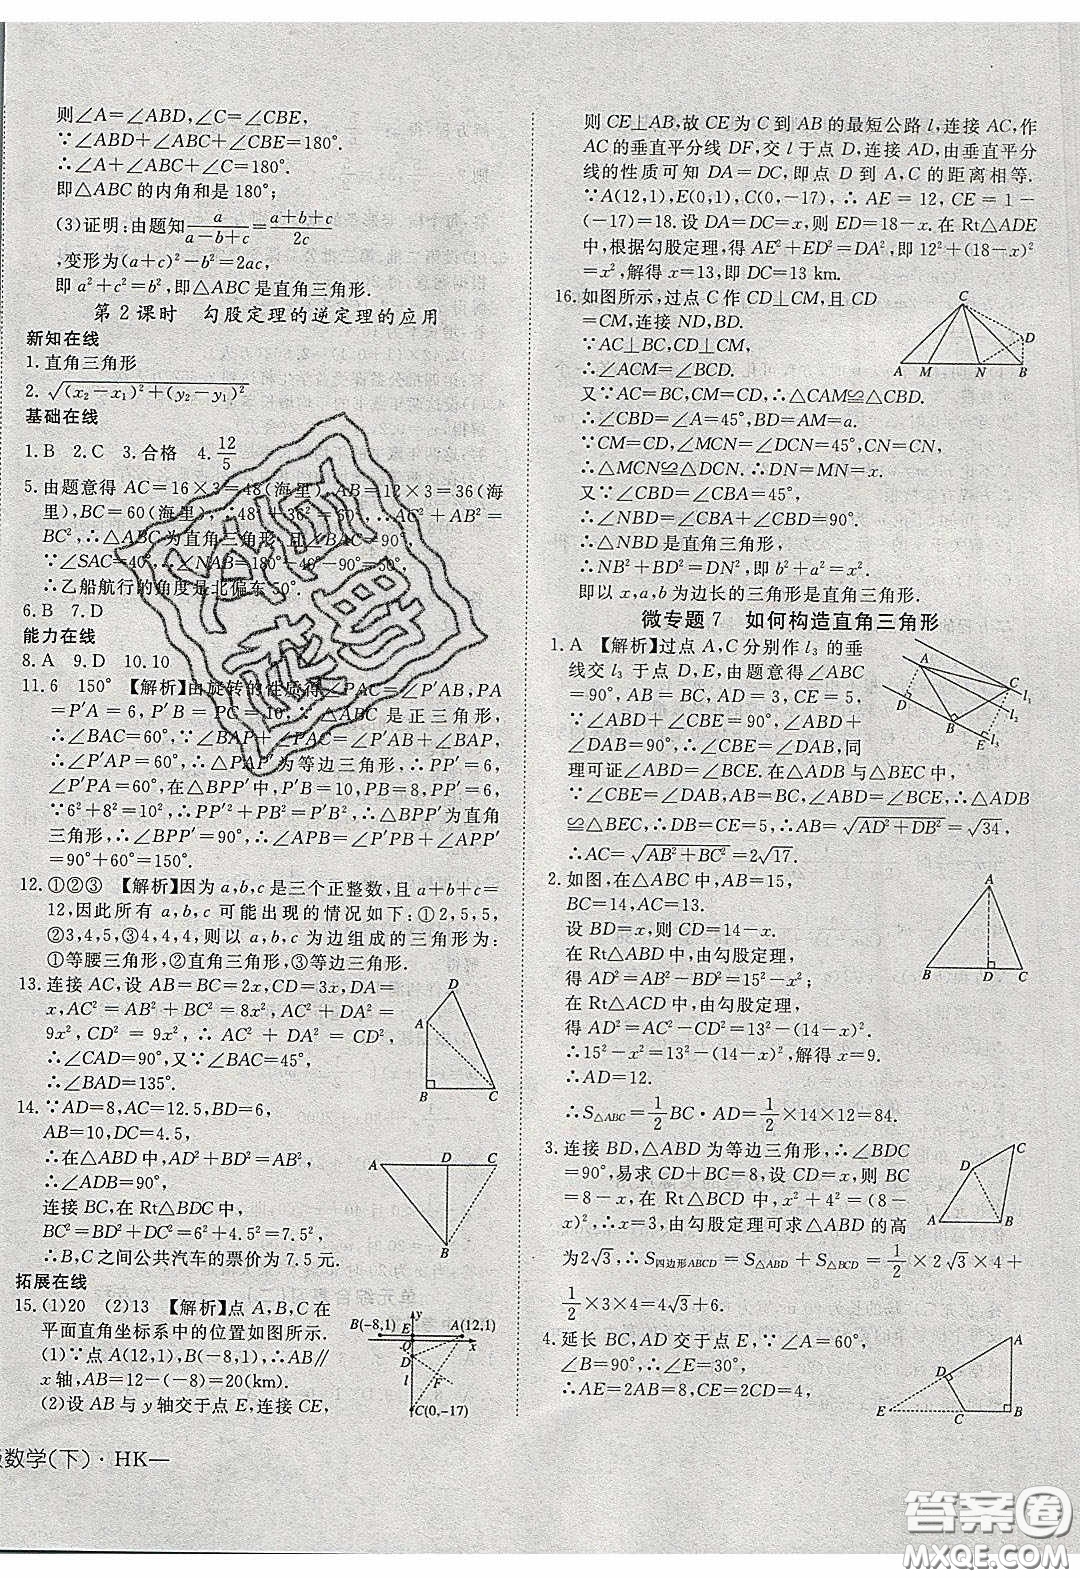 则∠A=∠ABD,∠C=∠CBE,
∵∠ABD+∠ABC+∠CBE=180°,
∴∠A+∠ABC+∠C=180°.
即△ABC的内角和是180°;
(3)证明:由题知a/(a-b+c)=(a+b+c)/2c
,变形为(a+c)²-b²=2ac,
即a²+c²=b²,即△ABC是直角三角形.
第2课时 勾股定理的逆定理的应用
新知在线
1.直角三角形
2.√((x₂-x₁)²+(y₂-y₁)²)
基础在线
1.B 2.C 3.合格 4.12/5
5.由题意得AC=16×3=48(海里),AB=12×3=36(海
里),BC=60(海里),∵48²+36²=60²,∴AC²+AB²=
BC²,∴△ABC为直角三角形,且∠BAC=90°,
∵∠SAC=40°,∴∠NAB=180°-40°-90°=50°,
∴乙船航行的角度是北偏东50°.
6.B 7.D
能力在线
8.A 9.D 10.10
11.6 150° 【解析】由旋转的性质得∠PAC=∠P′AB,PA
=P′A=6,P′B=PC=10,∵△ABC是正三角形,
∴∠BAC=60°,∵∠BAP+∠PAC=∠P′AB+∠BAP,
∴∠P′AP=60°,∴△PAP′为等边三角形,∴PP′=6,
∠P′PA=60°,在△BPP′中,∵PP′=6,PB=8,P′B=10,
∵6²+8²=10²,∴PP′²+PB²=P′B²,∴△BPP′为直角
三角形,∴∠BPP′=90°,∴∠APB=∠P′PB+∠APP′
=90°+60°=150°.
12.①②③ 【解析】因为a,b,c是三个正整数,且a+b+c=
12,因此所有a,b,c可能出现的情况如下:①2,5,5,
②3,4,5,③4,4,4,则以a,b,c为边组成的三角形为:
①等腰三角形,②直角三角形,③等边三角形.
13.连接AC,设AB=BC=2x,CD=3x,DA=
x,AC²=AB²+BC²=8x²,AC²+DA²=
9x²,CD²=9x²,∴AC²+DA²=CD²,
∴∠CAD=90°,又∵∠BAC=45°,
∴∠BAD=135°.
D
A
B
C
14.∵AD=8,AC=12.5,BD=6,
AB=10,DC=4.5,
∴在△ABD中,AD²+BD²=AB²,
∴∠ADB=90°,
连接BC,在Rt△BDC中,
BC²=BD²+DC²=6²+4.5²=7.5²,
∴B,C之间公共汽车的票价为7.5元.
A
D
C
B
拓展在线
15.(1)20 (2)13 【解析】点A,B,C在
平面直角坐标系中的位置如图所示.
(1)∵点A(12,1),B(-8,1),∴AB∥
x轴,AB=12-(-8)=20(km).
(2)设AB与y轴交于点E,连接CE,
y
B(-8,1)
E
A(12,1)
O
x
D
F
C(0,-17)
版数学(下)·HK—
则CE⊥AB,故CE为C到AB的最短公路l,连接AC,作
AC的垂直平分线DF,交l于点D,连接AD,由垂直平分
线的性质可知DA=DC,即点D到A,C的距离相等.
∵A(12,1),E(0,1),C(0,-17),∴AE=12,CE=1-
(-17)=18.设DA=DC=x,则ED=18-x.在Rt△ADE
中,根据勾股定理,得AE²+ED²=DA²,即12²+(18-x)²
=x²,解得x=13,即DC=13 km.
16.如图所示,过点C作CD⊥CM,且CD
=CM,连接ND,BD.
∵AC⊥BC,CM⊥CD,
∴∠ACM=∠BCD.
又∵AC=BC,CM=CD,∴△CAM≌△CBD.
∴∠CBD=∠A=45°,BD=AM=a.
∵CM=CD,∠MCN=∠DCN=45°,CN=CN,
∴△MCN≌△DCN.∴DN=MN=x.
又∵∠CBD=∠CBA=45°,
∴∠NBD=∠CBD+∠CBA=90°.
∴△NBD是直角三角形,
∴NB²+BD²=DN²,即b²+a²=x².
即以x,a,b为边长的三角形是直角三角形.
C
D
A
M
N
B
微专题7 如何构造直角三角形
1.A 【解析】过点A,C分别作l₃的垂
线交l₃于点D,E,由题意得∠ABC
=90°,AB=BC,AD=3,CE=5,
∵∠ABD+∠CBE=90°,∠ABD+
∠DAB=90°,∴∠CBE=∠DAB,同
理可证∠DBA=∠BCE.在△ADB与△BEC中,
∵∠CBE=∠DAB,AB=BC,∠DBA=∠BCE,∴△ADB
≌△BEC,∴DB=CE=5,∴AB=√(AD²+DB²)=√34,
∴AC=√(AB²+BC²)=2√17.
A
C
D
l₁
B
l₃
E
l₃
2.如图,在△ABC中,AB=15,
BC=14,AC=13.
设BD=x,则CD=14-x.
在Rt△ABD中,由勾股定理,
得AD²=AB²-BD²=15²-x²,
在Rt△ACD中,由勾股定理,
得AD²=AC²-CD²=13²-(14-x)².
∴15²-x²=13²-(14-x)²,解得x=9.
∴AD=12.
∴S△ABC=1/2BC·AD=1/2×14×12=84.
A
B
D
C
3.连接BD,△ABD为等边三角形,∴∠BDC
=90°,易求CD+BC=8,设CD=x,则BC
=8-x,在Rt△BCD中,x²+4²=(8-
x)²,∴x=3,由勾股定理可求△ABD的高
为2√3,∴S四边形ABCD=S△ABD+S△BCD=1/2×2√3×4+
1/2×3×4=4√3+6.
C
D
A
B
4.延长BC,AD交于点E,∵∠A=60°,
∠B=90°,∴∠E=30°.
∴AE=2AB=8,CE=2CD=4,
A
D
E
C
B
答案圈
MXQE.COM